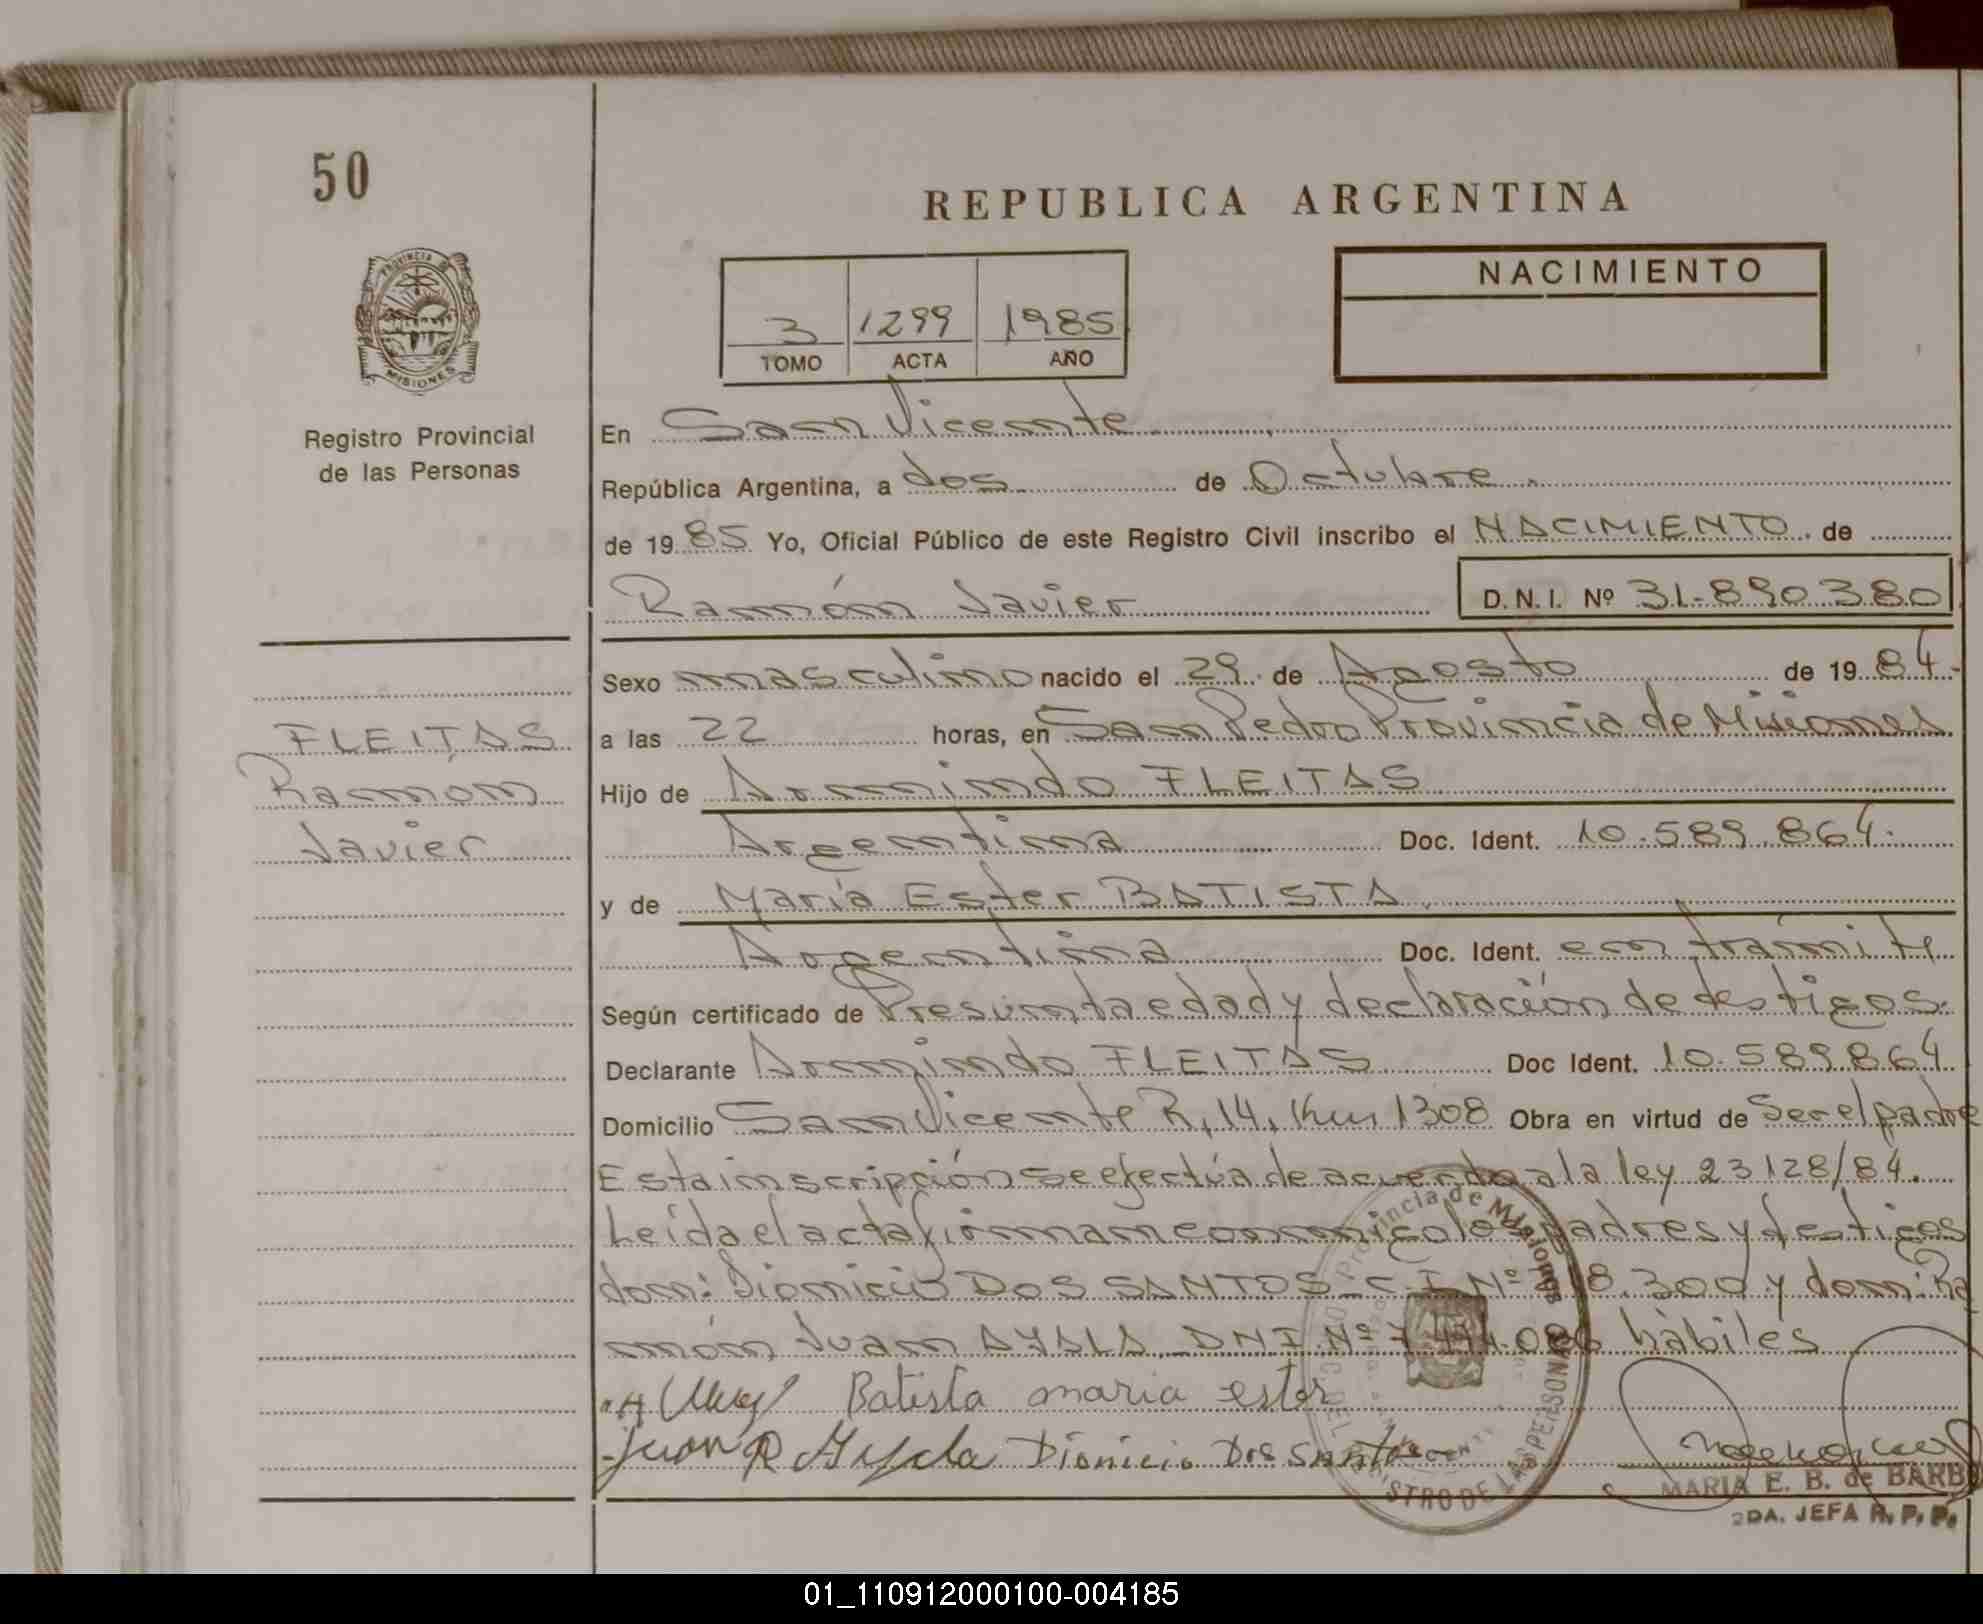 50
REPUBLICA ARGENTINA
PROVINCIA DE
MISIONES
Registro Provincial
de las Personas
3 1299 1985
TOMO ACTA AÑO
NACIMIENTO
En San Vicente
República Argentina, a dos de Octubre
de 1985 Yo, Oficial Público de este Registro Civil inscribo el NACIMIENTO de
Ramón Javier D.N.I. Nº 31.890.380
Sexo masculino nacido el 29 de Agosto de 1984
a las 22 horas, en San Pedro Provincia de Misiones
Hijo de Armindo FLEITAS
Argentina Doc. Ident. 10.589.864
y de María Ester BATISTA
Argentina Doc. Ident. en trámite
Según certificado de Presunta edad y declaración de testigos
Declarante Armindo FLEITAS Doc Ident. 10.589.864
Domicilio San Vicente R, 14, Km 1308 Obra en virtud de Ser el padre
Esta inscripción se efectúa de acuerdo a la ley 23128/84.
Leída el acta firman conmigo los padres y testigos
don: Dionicio DOS SANTOS C.I Nº 300 y don: Ra
món Juan AYALA DNI Nº hábiles
FLEITAS
Ramón
Javier
Batista maria ester
Juan R Ayala Dionicio Dos Santos
Provincia de Misiones
MARIA E. B. de BARB
2DA. JEFA R. P. P.
01_110912000100-004185